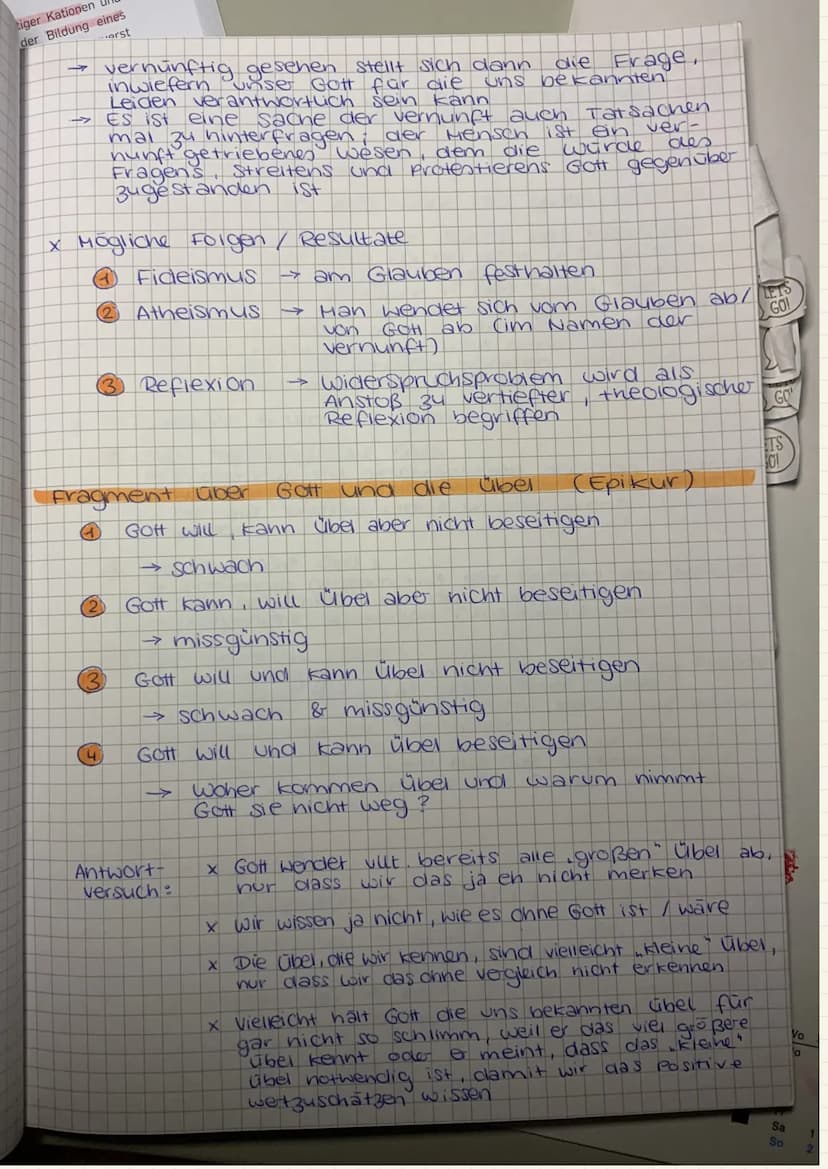 tiger Kationen un
der Bildung eines
erst
→ vernünftig gesehen stellt sich dann die Frage,
inwiefern unser Gott für die uns bekannten
Leiden verantwortlich sein kann
→ Es ist eine Sache der Vernunft auch Tatsachen
mal zu hinterfragen; der Mensch ist ein ver-
nunft getriebenes Wesen, dem die Würde des
Fragens, Streitens und Protestierens Gott gegenüber
zugestanden ist
x Mögliche Folgen / Resultate
1 Fideismus → am Glauben festhalten
2 Atheismus → Man wendet sich vom Glauben ab/
von Gott ab (im Namen der
Vernunft)
3 Reflexion → Widerspruchsproblem wird als
Anstoß zu vertiefter, theologischer
Reflexion begriffen
LETS
GO!
GO'
ETS
GO!
Fragment über Gott und die Übel (Epikur)
1 Gott will, kann Übel aber nicht beseitigen
→ schwach
2 Gott kann, will Übel aber nicht beseitigen
→ missgünstig
3 Gott will und kann Übel nicht beseitigen
→ schwach & missgünstig
4 Gott will und kann Übel beseitigen
→ Woher kommen Übel und warum nimmt
Gott sie nicht weg?
Antwort-
versuch:
x Gott wendet vllt. bereits alle „großen" Übel ab,
nur dass wir das ja eh nicht merken
x Wir wissen ja nicht, wie es ohne Gott ist / wäre
x Die Übel, die wir kennen, sind vielleicht „kleine" Übel,
nur dass wir das ohne Vergleich nicht erkennen
x Vielleicht hält Gott die uns bekannten Übel für
gar nicht so schlimm, weil er das viel größere
Übel kennt oder er meint, dass das „kleine"
Übel notwendig ist, damit wir das Positive
wertzuschätzen wissen
Vo
Sa 1
So 2